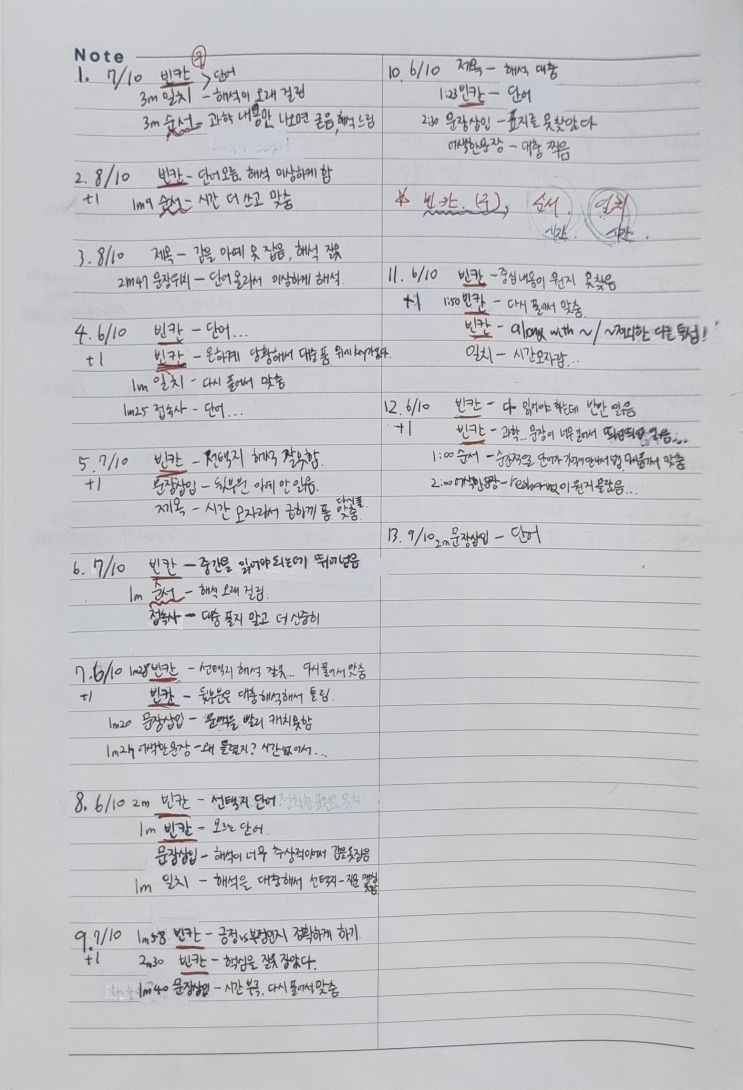 Note
1. 7/10 빈칸 > 단어
3m 일치 - 해석이 오래 걸림
3m 순서 - 과학 내용만 나오면 굳음, 해석 느림
2. 8/10 빈칸 - 단어 오늘. 해석 이상하게 함
+1 1m9 순서 - 시간 더 쓰고 맞춤
3. 8/10 제목 - 감을 아예 못 잡음, 해석 잘못
2m47 문장위치 - 단어 몰라서 이상하게 해석
4. 6/10 빈칸 - 단어...
+1 빈칸 - 은하계 당황해서 대충 품. 뒤에 key가 있다.
1m 일치 - 다시 풀어서 맞춤
1m25 접속사 - 단어...
5. 7/10 빈칸 - 선택지 해석 잘못함.
+1 문장삽입 - 뒷부분 아예 안 읽음.
제목 - 시간 모자라서 급하게 품. 다시 풂 맞춤
6. 7/10 빈칸 - 중간을 읽어야 되는데 뛰어넘음
1m 순서 - 해석 오래 걸림.
접속사 - 대충 풀지 말고 더 신중히
7. 6/10 1m28 빈칸 - 선택지 해석 잘못... 다시 풀어서 맞춤
+1 빈칸 - 뒷부분은 대충 해석해서 틀림.
1m20 문장삽입 - 문맥을 빨리 캐치 못함
1m24 어색한 문장 - 왜 틀렸지? 시간 없어서...
8. 6/10 2m 빈칸 - 선택지 단어
1m 빈칸 - 모르는 단어.
문장삽입 - 해석이 너무 추상적이어서 감을 못 잡음
1m 일치 - 해석을 대충해서 선택지 - 지문
9. 7/10 1m58 빈칸 - 긍정 vs 부정인지 정확하게 하기
+1 2m30 빈칸 - 핵심을 잘못 잡았다.
1m40 문장삽입 - 시간 부족. 다시 풀어서 맞춤
10. 6/10 제목 - 해석 대충
1:23 빈칸 - 단어
2:30 문장삽입 - 표지를 못 찾았다
어색한문장 - 대충 찍음
* 빈칸.(주), 순서. 일치
시간. 시간.
11. 6/10 빈칸 - 중심내용이 뭔지 못 찾음
+1 1:50 빈칸 - 다시 풀어서 맞춤.
빈칸 - along with ~/ ~제외한 다른 특성!
일치 - 시간 모자람...
12. 6/10 빈칸 - 다 읽어야 하는데 반만 읽음
+1 빈칸 - 과학... 문장이 너무 길어서 띄엄띄엄 읽음...
1:00 순서 - 순간적으로 단어가 기억이 안 나서 맞춤
2:00 어색한문장 - 이 뭔지 몰랐음...
13. 9/10 2m 문장삽입 - 단어